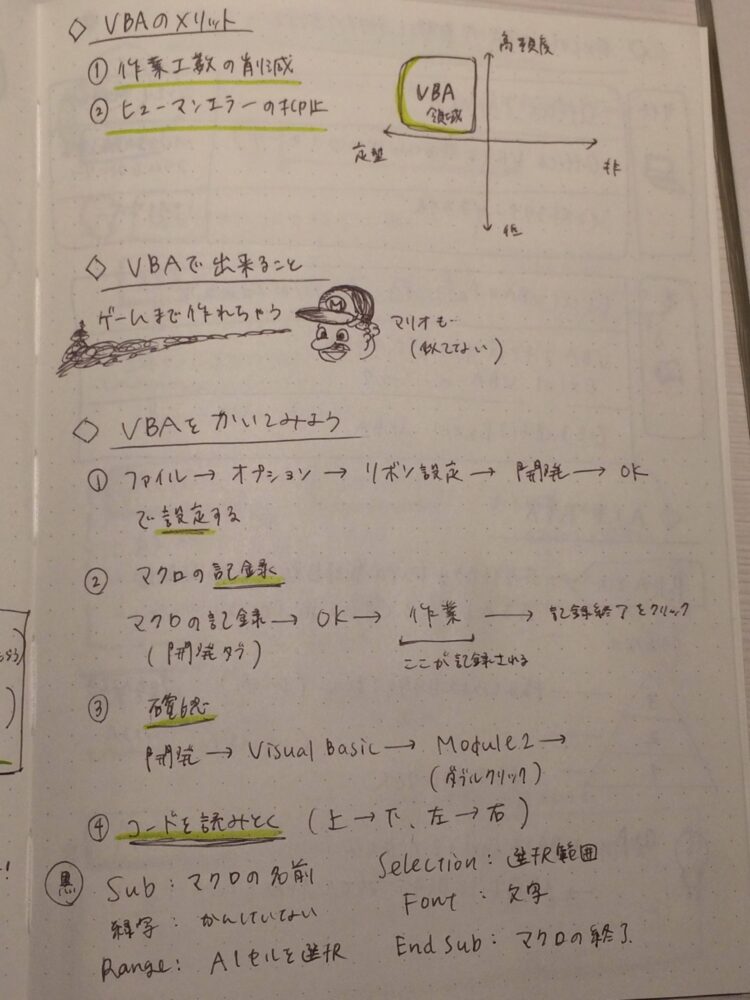 ◇ VBAのメリット
① 作業工数の削減
② ヒューマンエラーの抑止
高頻度
VBA
領域
定型
非
低
◇ VBAで出来ること
ゲームまで作れちゃう
M
マリオも…
(似てない)
◇ VBAをかいてみよう
① ファイル→オプション→リボン設定→開発→OK
で設定する
② マクロの記録
マクロの記録→OK→作業→記録終了をクリック
(開発タブ)
ここが記録される
③ 確認
開発→Visual Basic→Module2→
(ダブルクリック)
④ コードを読みとく (上→下、左→右)
黒
Sub:マクロの名前
緑字:かんけいない
Range:A1セルを選択
Selection:選択範囲
Font:文字
End Sub:マクロの終了